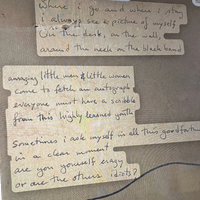 Where I go and where I stay
I always see a picture of myself
On the desk, on the wall,
around the neck on the black band
amazing little men & little women
come to fetch an autograph
everyone must have a scribble
from this highly learned youth
Sometimes I ask myself in all this good fortune
in a clear moment
are you yourself crazy
or are the others idiots?